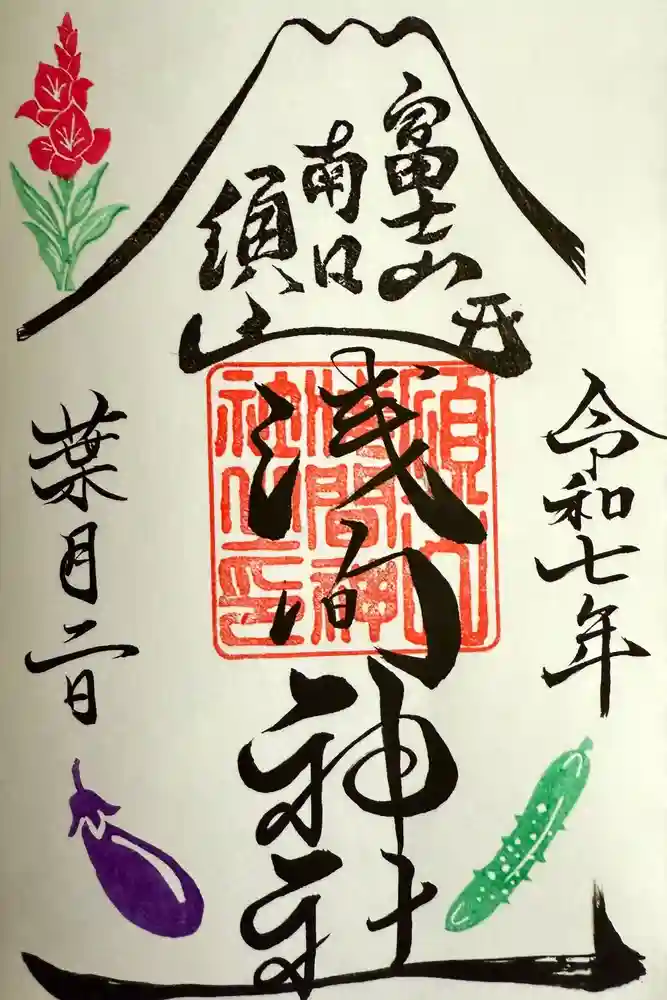 富士山
南口
須山
浅間神社
須山
浅間神
社之印
令和七年
葉月二日